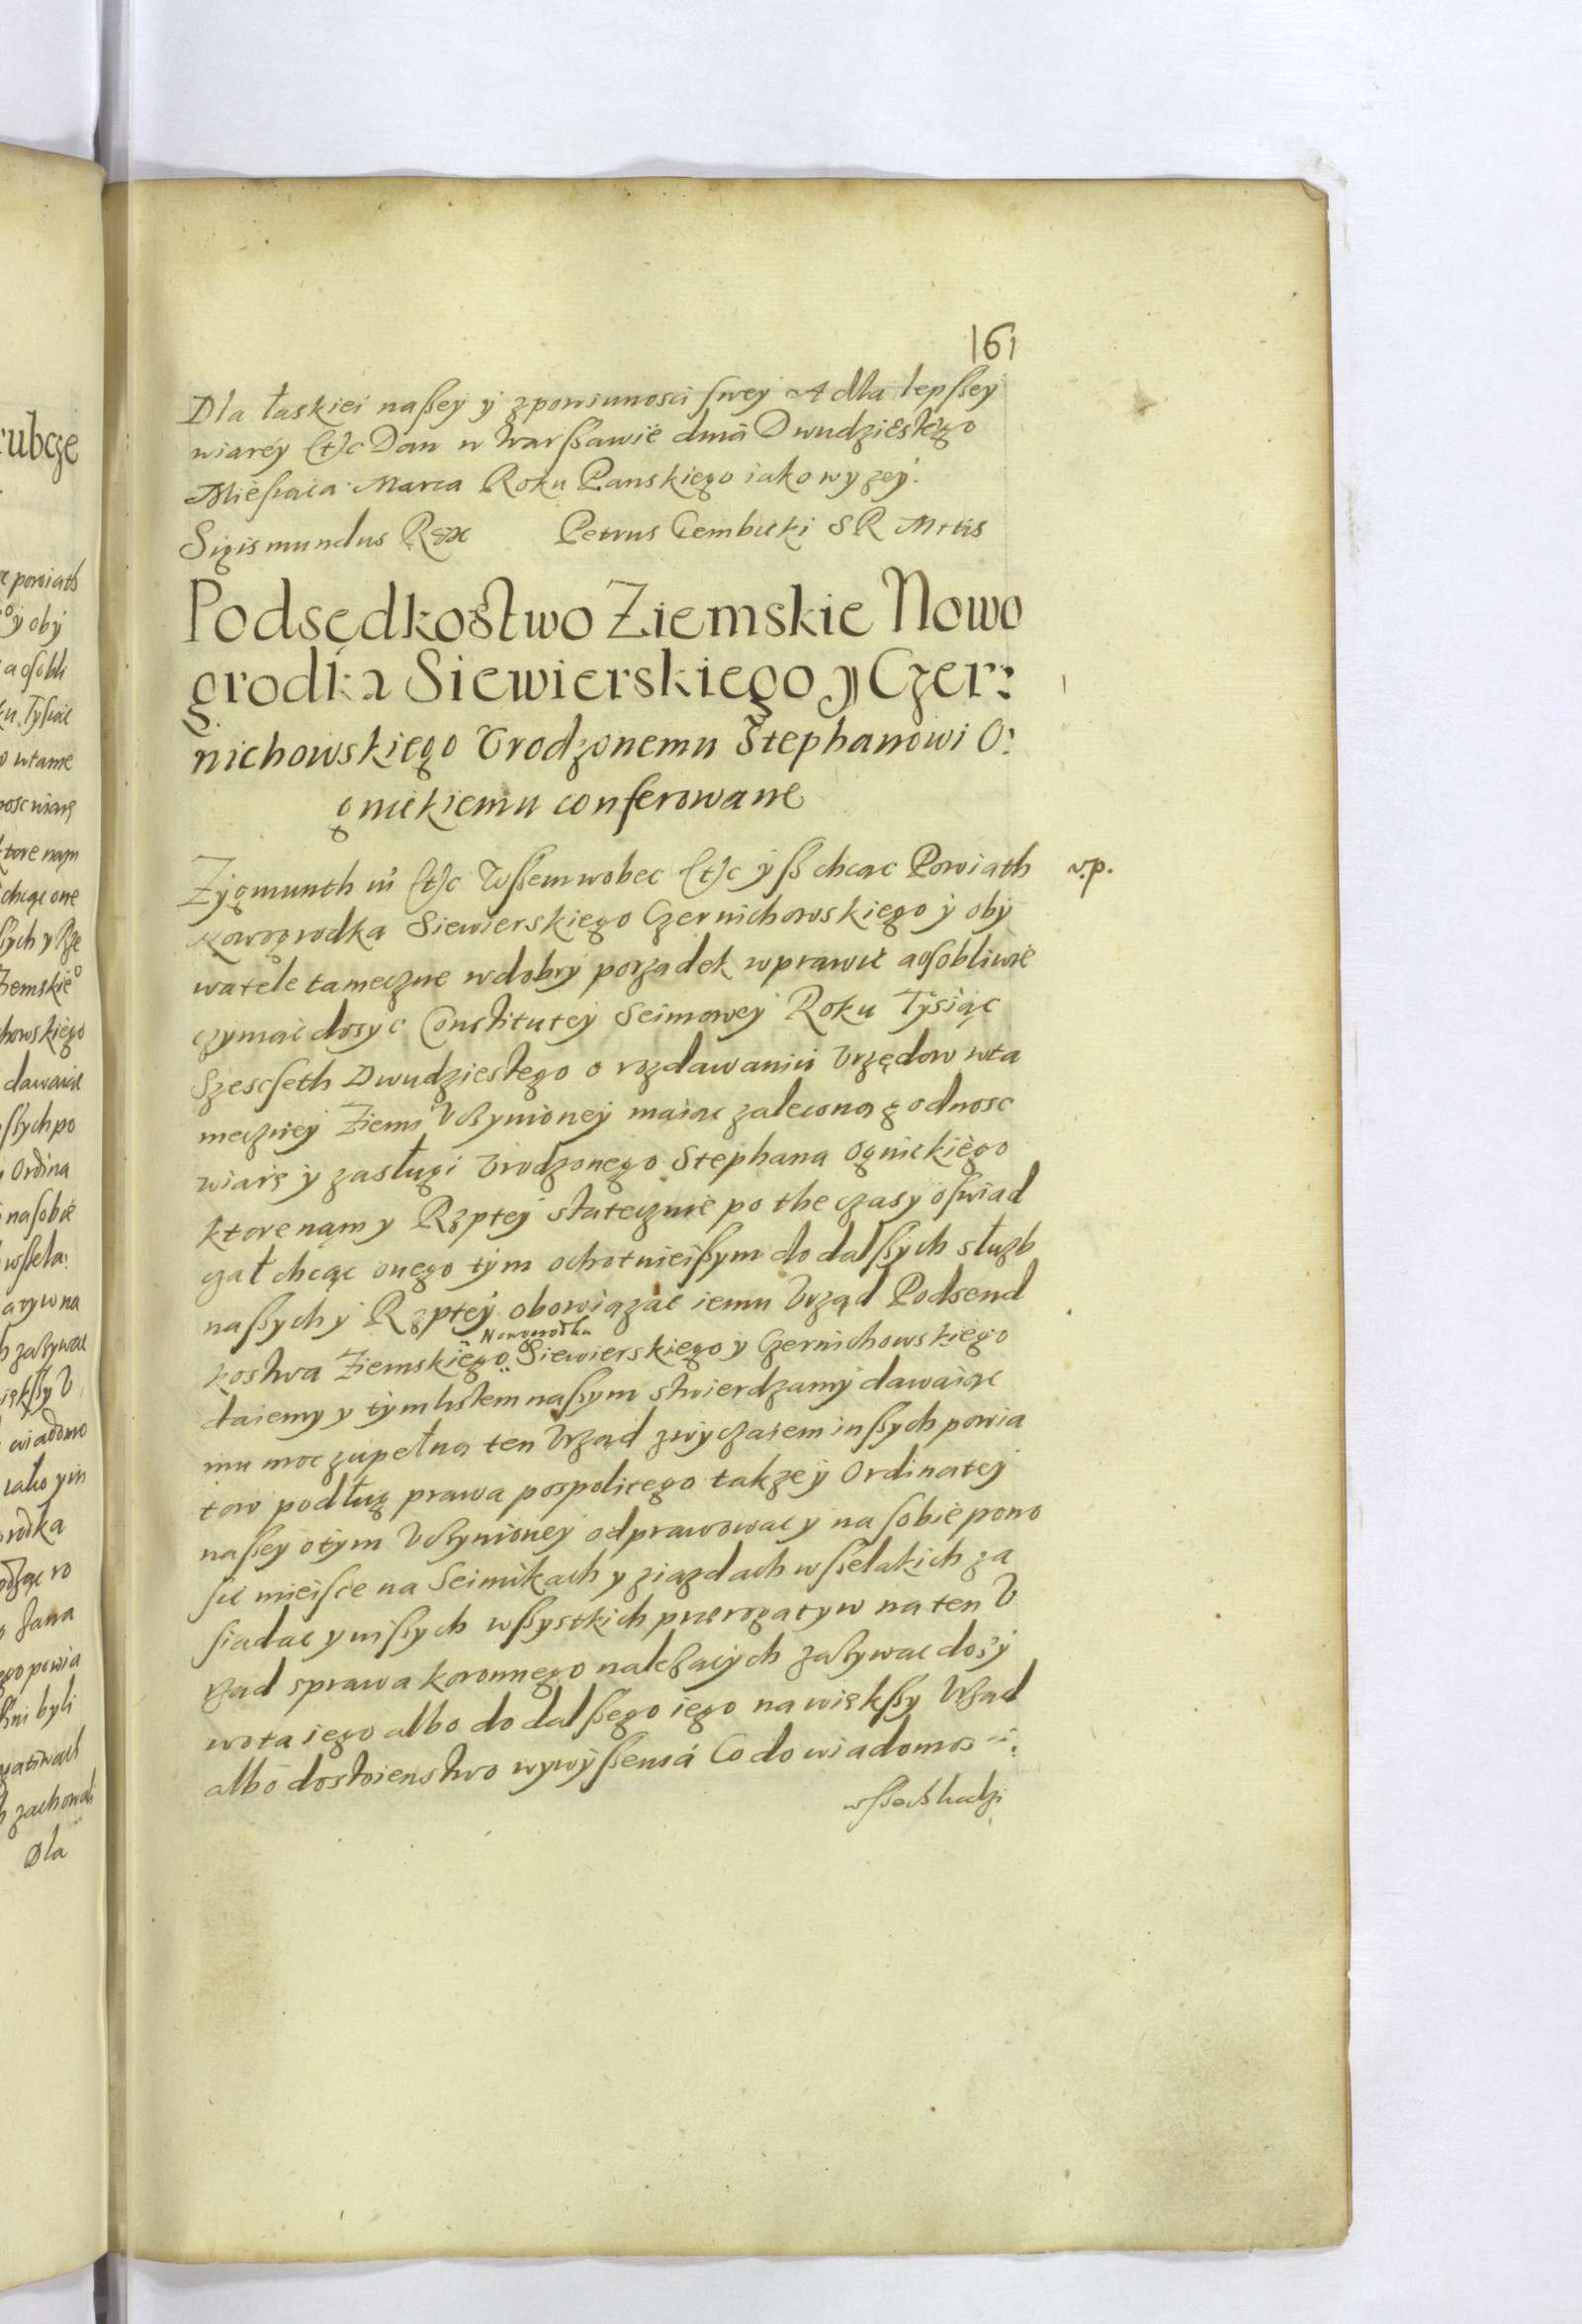 161
Dla łaskiei naßey ÿ zpowinnosci swey A dla lepßey
wiarey (t)c Dan w Warßawie dnia Dwudziestego
Miesiaca Marca Roku Panskiego iako wyzey.
Sigismundus Rex Petrus Gembicki SR Mttis
Podsędkostwo Ziemskie Nowo
grodka Siewierskiego y Czer:
nichowskiego Vrodzonemu Stephanowi O:
gnickiemu conferowane
Zÿgmunth III (t)c Wßemwobec (t)c ÿß chcąc Powiath
v.p.
Nowogrodka Siewierskiego Czernichowskiego ÿ obÿ
watele tameczne w dobrÿ porzadek wprawic a osobliwie
czyniac dosyc Constitutiey Seimoweÿ Roku Tÿsiąc
Szescseth Dwudziestego o rozdawaniu Vrzędow w ta
meczneÿ Ziemi Vcżynioneÿ maiac zalecona godnosc
wiarę ÿ zasługi Vrodzonego Stephana Ognickiego
ktore nąm y Rzpteÿ statecznie po the czasy oswiad
czał chcąc onego tÿm ochotnieißym do dalßych słuzb
naßych ÿ Rzpteÿ obowiązac iemu Vrząd Podsend
kostwa Ziemskiego Nowogrodka Siewierskiego ÿ Czernichowskiego
daiemy y tÿm listem naßym stwierdzamÿ dawaiąc
mu moc zupełna ten Vrząd zwÿczaiem inßych powia
tow podług prawa pospolitego takze ÿ Ordinatieÿ
naßeÿ o tÿm Vcżynioneÿ odprawowac y na sobie pono
sic mieisce na Seimikach y ziazdach wßelakich za
siadac y inßych wßystkich prerogatyw na ten V
rżad sprawa koronnego należacÿch zażywac do żÿ
wota iego albo do dalßego iego na więkßy Vrżad
albo dostoienstwo wywÿßenia Co do wiadomosci
wßech ludzi